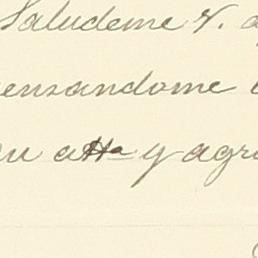 Saludeme V. a
ensandome
su atta y agra